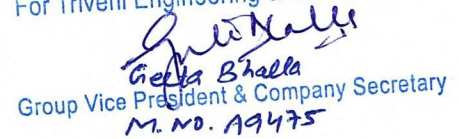 For Triveni Engineering
Geeta Bhalla
Group Vice President & Company Secretary
M. NO. A9475